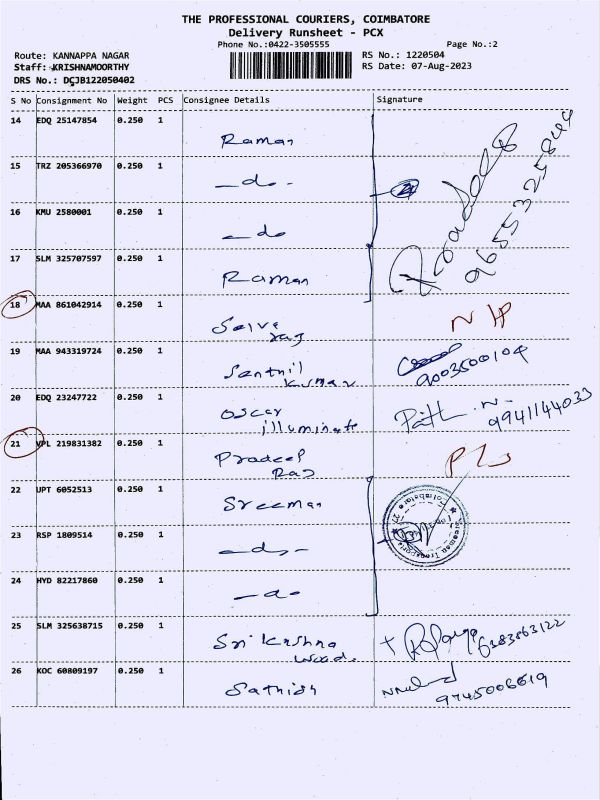 THE PROFESSIONAL COURIERS, COIMBATORE
Delivery Runsheet - PCX
Phone No.:0422-3505555 Page No.:2
Route: KANNAPPA NAGAR RS No.: 1220504
Staff: KRISHNAMOORTHY RS Date: 07-Aug-2023
DRS No.: DCJB122050402
S No Consignment No Weight PCS Consignee Details Signature
14 EDQ 25147854 0.250 1 Raman
15 TRZ 205366970 0.250 1 -do-
16 KMU 2580001 0.250 1 -do
17 SLM 325707597 0.250 1 Raman
Pradeep
9655325844
18 MAA 861042914 0.250 1 Selva
raj
19 MAA 943319724 0.250 1 Senthil
Kumar
9003500104
20 EDQ 23247722 0.250 1 Oscar
illuminate
9941144033
21 VPL 219831382 0.250 1 Pradeep
Raj
22 UPT 6052513 0.250 1 Sreeman
23 RSP 1809514 0.250 1 -do-
24 HYD 82217860 0.250 1 -do-
25 SLM 325638715 0.250 1 Sri Krishna
6383863122
26 KOC 60809197 0.250 1 Sathish
9745006619